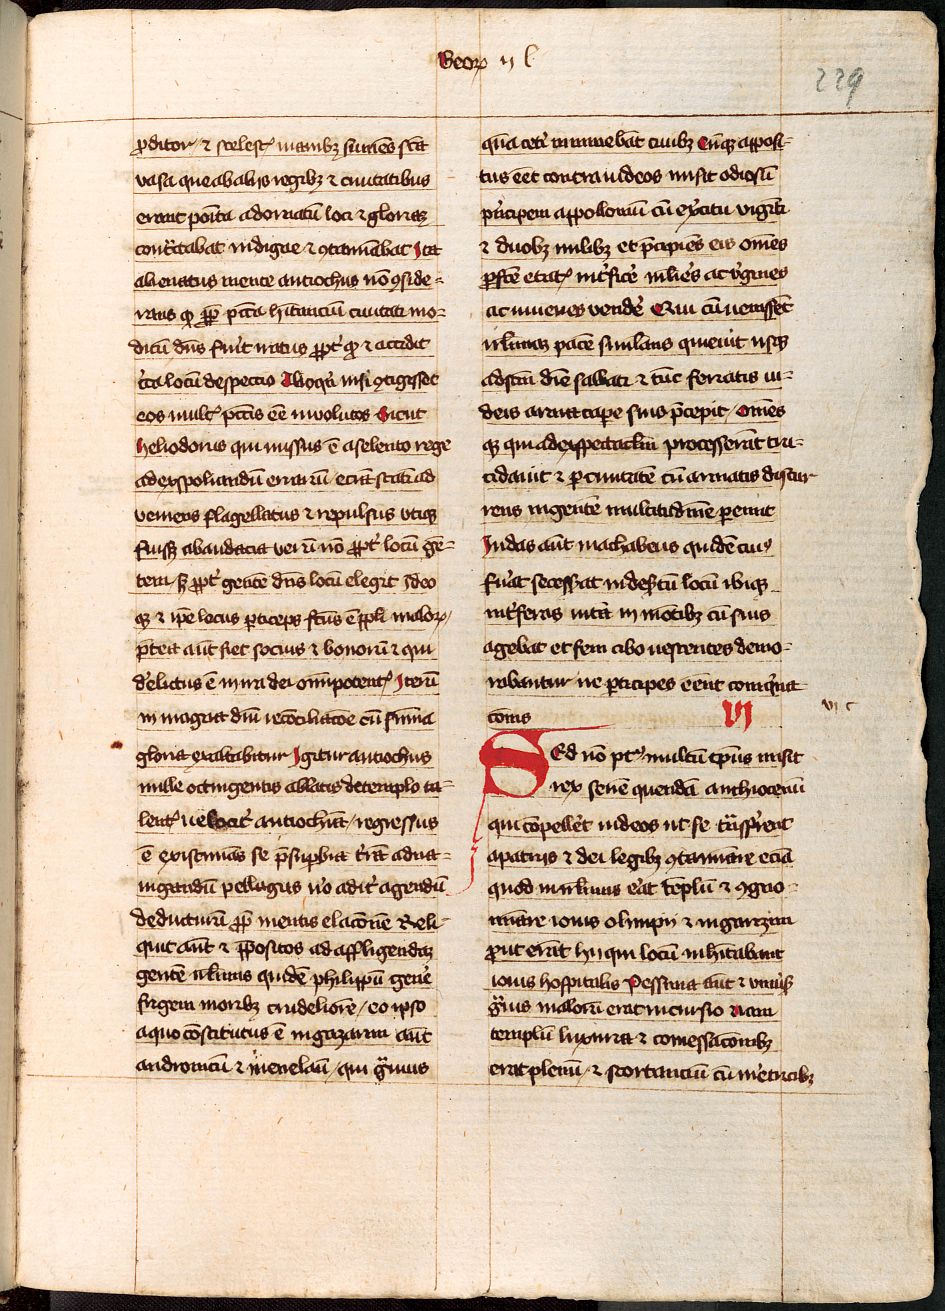 Beoꝝ ij l
229
ꝓditor⁊ ⁊ scelest⁊ manibꝫ sumēs scā
vasa que ab alijs regibꝫ ⁊ ciuitatibus
erant poīta ad ornatū loci ⁊ gloriaꝫ
cont̄ctabat indigne ⁊ ꝯtamīabat Ita
alienatus mente antiochus nō ꝯside-
rans qꝫ ꝓpt̄ pctā hītanciū ciuitatē mo-
dicū dn̄s fuīt iratus ꝓpt̄ qꝫ ⁊ accidit
c̄ca locū despectio Alioqn̄ nisi ꝯtigisset
eos mult⁊ pctīs eē inuolutos Sicut
heliodorus qui missus ē a seleuco rege
ad expoliandū erariū eciā statī ad
veniens flagellatus ⁊ repulsus vtiqꝫ
fuisꝫ ab audacia veꝝ nō ꝓpt̄ locū gē-
tem sꝫ ꝓpt̄ gentē dn̄s locū elegit Ideo
qꝫ ⁊ ip̄e locus ꝑticeps fctūs ē ppli maloꝝ
p̄tea aūt fiet socius ⁊ bonorū ⁊ qui
d̄elictus ē in ira dei omīpotent⁊ Iterū
in magni dn̄i recōciliacōe cū sūma
gloria exaltabitur Igitur antiochus
mille octingentis ablatis de templo ta-
lent⁊ velocit̄ antiochiā regressus
ē existimās se p̄ supbia t̄rā ad na-
uigandū pellagus v̄o ad it̄ agendū
deducturū ꝓpt̄ mentis elacōnē Reli-
quit aūt ⁊ p̄positos ad affligendaꝫ
gentē irlimis quidē philippū gen̄e
frigem moribꝫ crudeliorē eo ip̄o
a quo cōstitutus ē in gazarim aūt
andronicū ⁊ menelaū qui gͣuius
quā cet̄i īminebāt ciuibꝫ Cūqꝫ apposi-
tus eēt contra iudeos misit odiosū
pn̄cipem appolloniū cū exc̄itu viginti
⁊ duobꝫ milibꝫ et p̄cipiēs eis omēs
ꝑfcē etat⁊ int̄fic̄e mlīes ac v̄gines
ac iuuenes vend̄e Qui cū venisset
irlimaꝫ pacē simulans quieuit usqꝫ
ad scm̄ diē sabbati ⁊ tūc feriatis iu-
deis arma cape suis p̄cepit Omēs
qꝫ qui ad expectaclm̄ processerāt tru-
cidauit ⁊ ꝑ ciuitatē cū armatis discur
rens ingentē multitudinē peremit
Iudas aūt machabeus qui decimꝰ
fuāt secesserat in desertū locū ibiqꝫ
int̄ feras uitā in mōtibꝫ cū suis
agebat et feni cibo vescentes demo-
rabantur ne ꝑticipes eēnt coinqīna
cōnis VI
vi c
SEd nō pꝰ multū tp̄us misit
rex senē quendā anthiocenū
qui cōpellet̄ iudeos ut se trāsferrent
a patriis ⁊ dei legibꝫ ꝯtamīare eciā
quod in irlimis erat tēplū ⁊ ꝯgno-
mīare iouis olimpij ⁊ in garizim
ꝓut erāt hij qui locū inhitabant
iouis hospitalis Pessima aūt ⁊ vniūs
gͣuis malorū erat incursio Nam
templū luxuria ⁊ comessacōnibꝫ
erat plenū ⁊ scortanciū cū m̄etricibꝫ